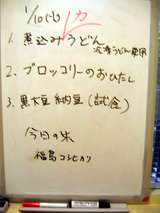 1/10(火)
1. 煮込みうどん
冷凍うどん使用
2. ブロッコリーのおひたし
3. 黒大豆納豆(試食)
今日の米
福島コシヒカリ